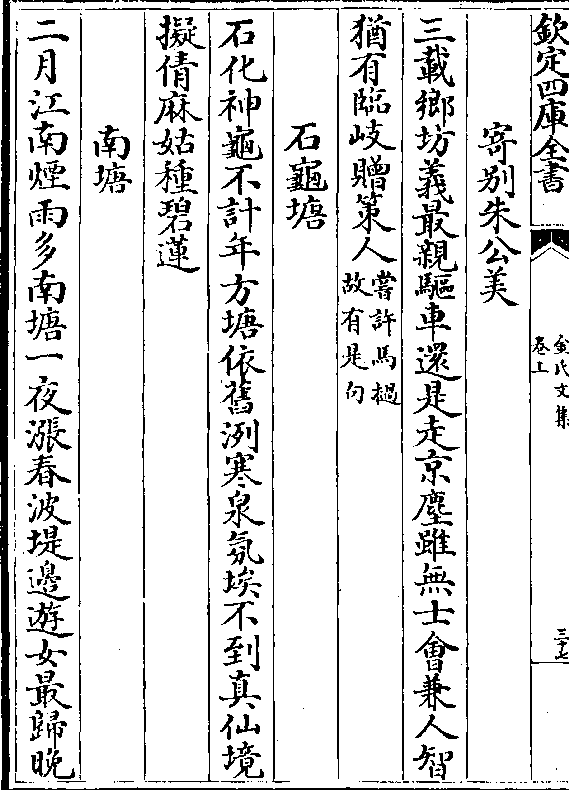 欽定四庫全書
金氏文集
卷上
三十七
寄別朱公美
三載鄉坊義最親驅車還是走京塵雖無士會兼人智
猶有臨岐贈策人
嘗許馬檛
故有是句
石龜塘
石化神龜不計年方塘依舊冽寒泉氛埃不到真仙境
擬倩麻姑種碧蓮
南塘
二月江南煙雨多南塘一夜漲春波堤邊遊女最歸晚